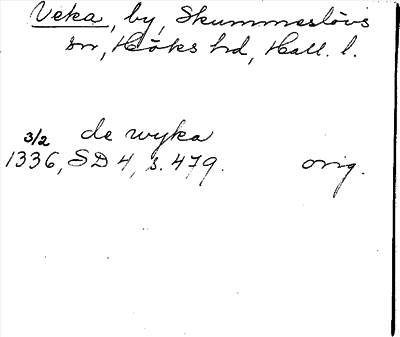 Veka, by, Skummeslövs
sn, Höks hd, Hall. l.
de wyka
3/2
1336, SD 4, s. 479. orig.